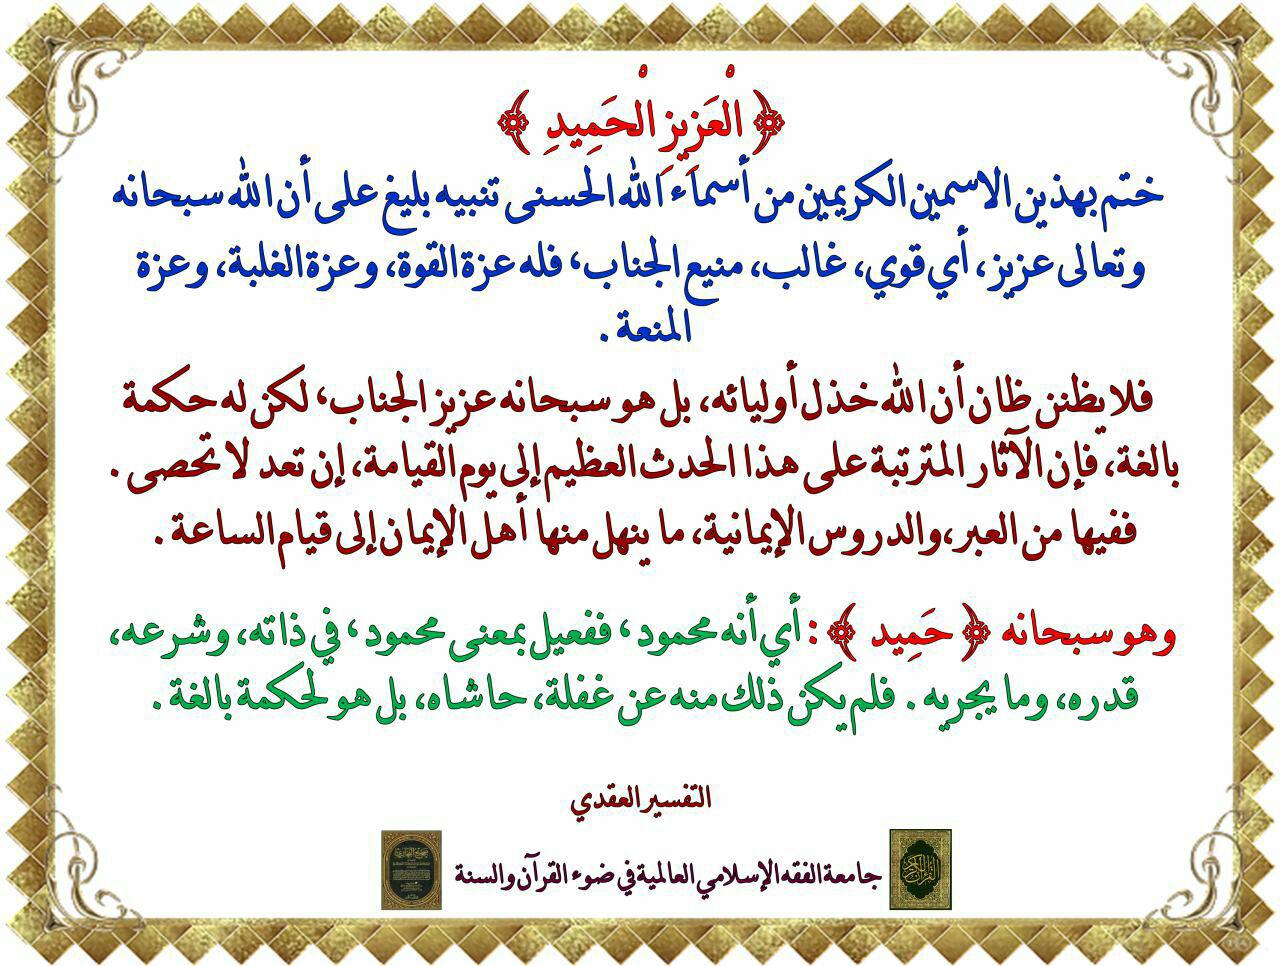 ﴿ الْعَزِيزِ الْحَمِيدِ ﴾
ختم بهذين الاسمين الكريمين من أسماء الله الحسنى تنبيه بليغ على أن الله سبحانه
وتعالى عزيز، أي قوي، غالب، منيع الجناب، فله عزة القوة، وعزة الغلبة، وعزة
المنعة .
فلا يظنن ظان أن الله خذل أوليائه، بل هو سبحانه عزيز الجناب، لكن له حكمة
بالغة، فإن الآثار المترتبة على هذا الحدث العظيم إلى يوم القيامة، إن تعد لا تحصى .
ففيها من العبر، والدروس الإيمانية، ما ينهل منها أهل الإيمان إلى قيام الساعة .
وهو سبحانه ﴿ حَمِيد ﴾ : أي أنه محمود، ففعيل بمعنى محمود، في ذاته، وشرعه،
قدره، وما يجريه . فلم يكن ذلك منه عن غفلة، حاشاه، بل هو لحكمة بالغة .
التفسير العقدي
جامعة الفقه الإسلامي العالمية في ضوء القرآن والسنة
صحيح البخاري
القرآن الكريم